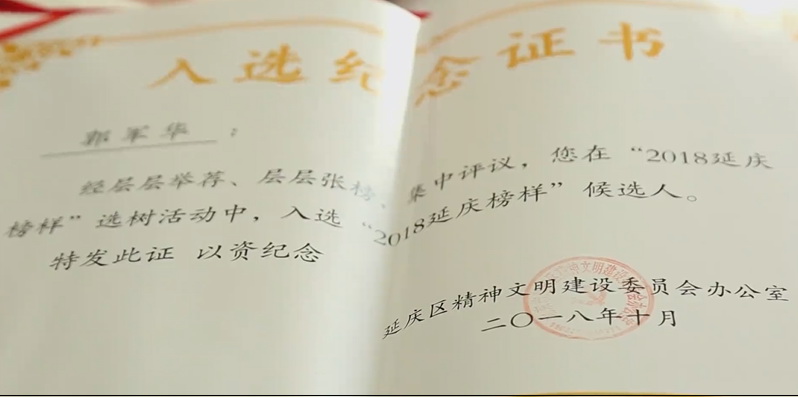 入选纪念证书
郭军华：
经层层举荐、层层张榜、集中评议，您在“2018延庆
榜样”选树活动中，入选“2018延庆榜样”候选人。
特发此证 以资纪念
延庆区精神文明建设委员会办公室
二〇一八年十月